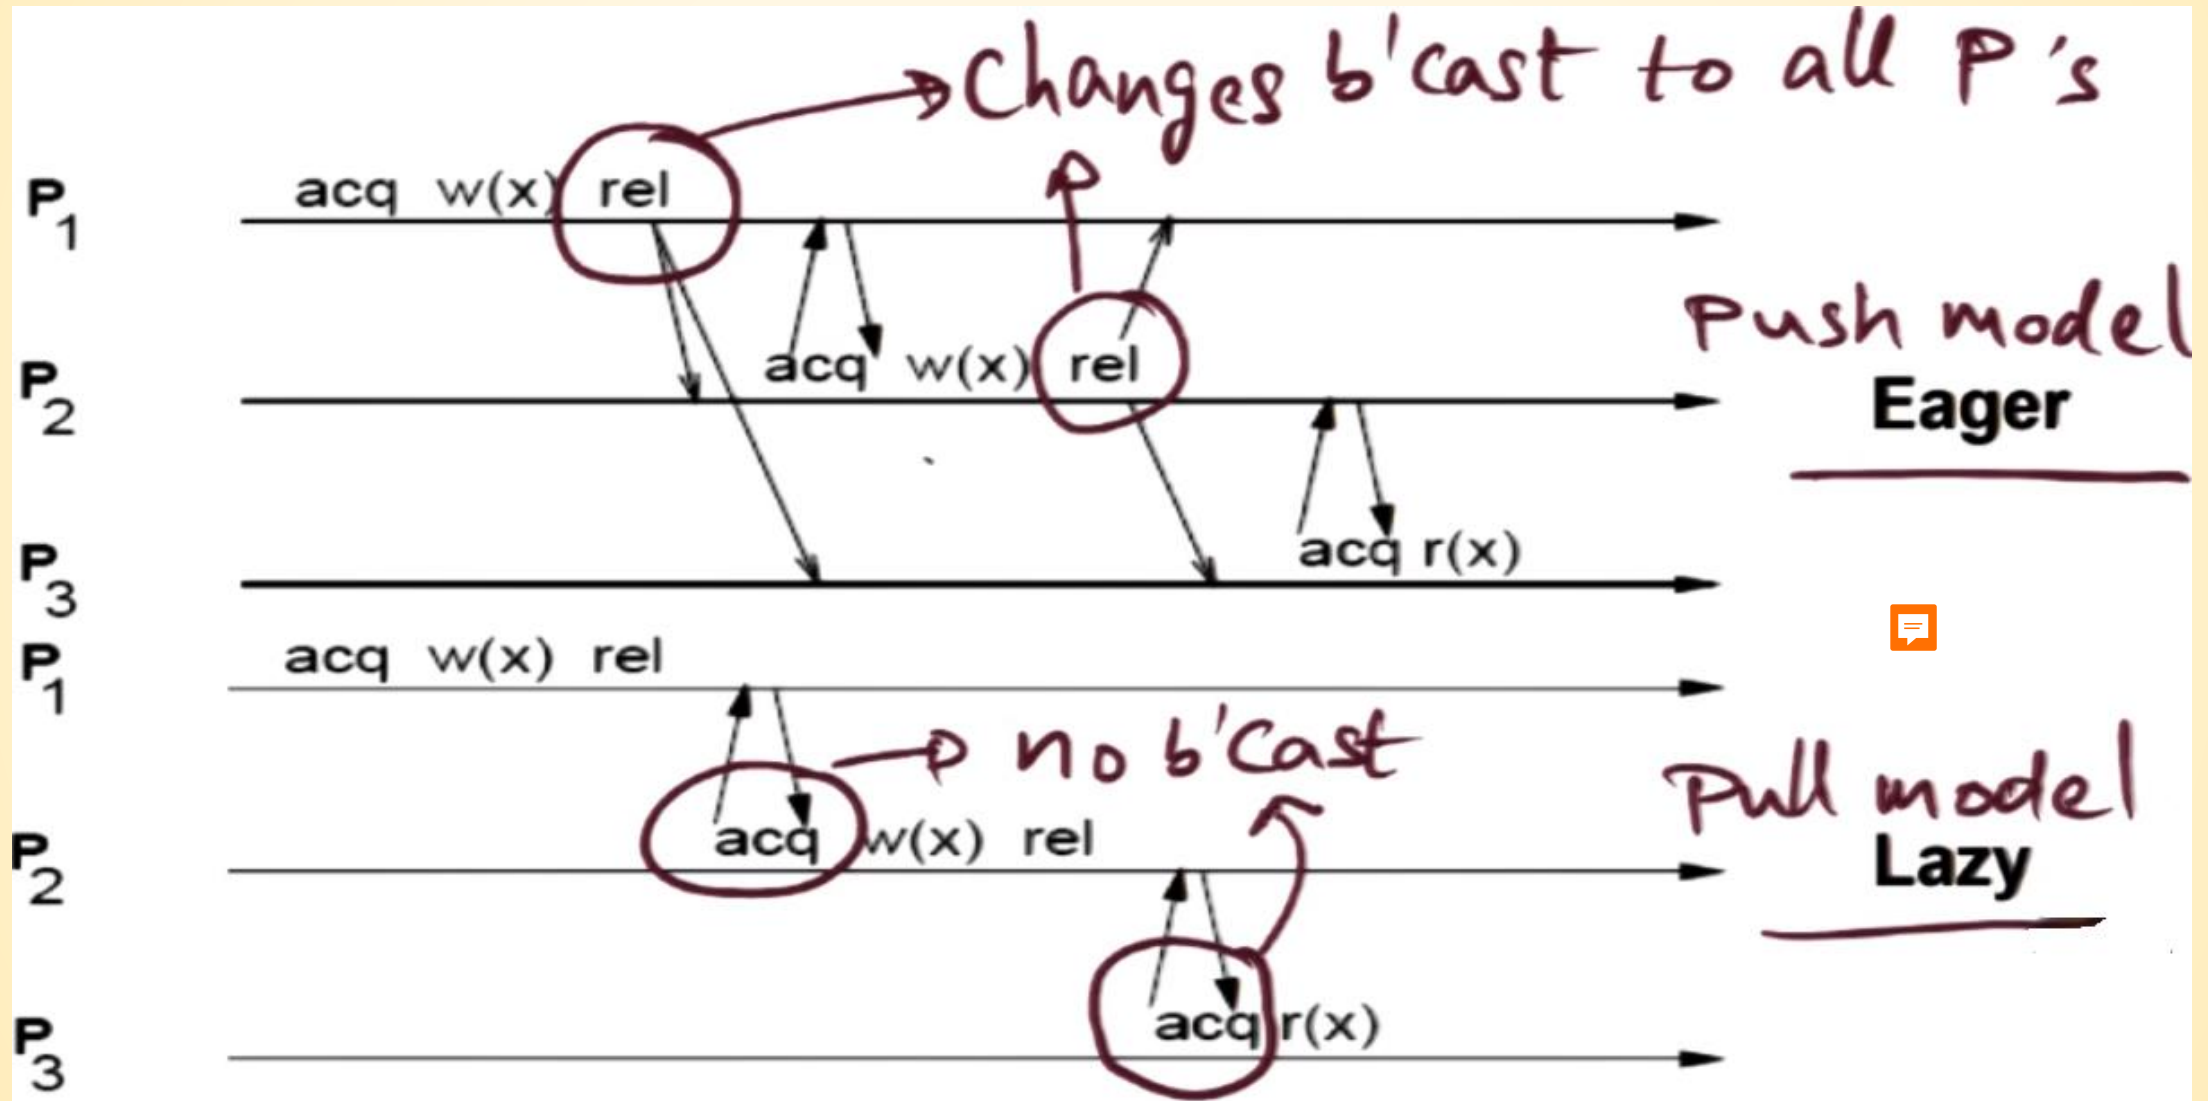 Changes b'cast to all P's
P1 acq w(x) rel
Push model
P2 acq w(x) rel
Eager
P3 acq r(x)
P1 acq w(x) rel
no b'cast
Pull model
P2 acq w(x) rel
Lazy
P3 acq r(x)